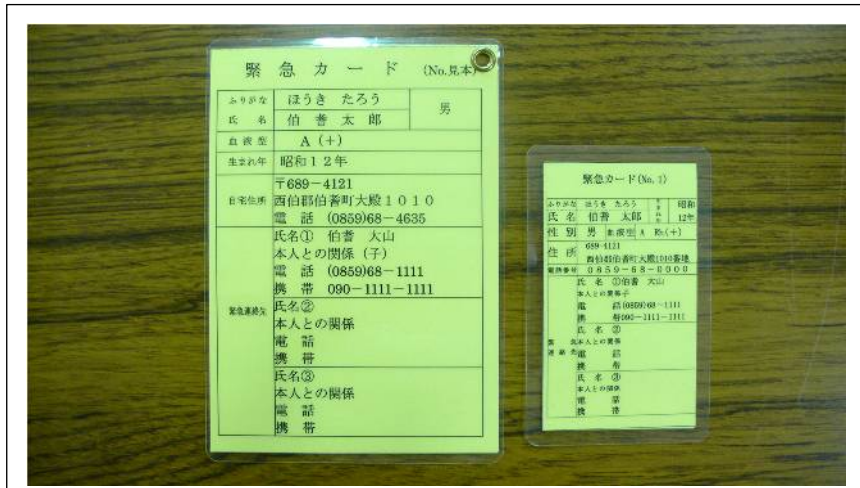 緊急カード (No.見本)
ふりがな ほうき たろう 男
氏名 伯耆太郎
血液型 A (+)
生まれ年 昭和12年
自宅住所 〒689-4121
西伯郡伯耆町大殿1010
電話 (0859)68-4635
緊急連絡先 氏名① 伯耆 大山
本人との関係 (子)
電話 (0859)68-1111
携帯 090-1111-1111
氏名②
本人との関係
電話
携帯
氏名③
本人との関係
電話
携帯
緊急カード(No. 1)
ふりがな ほうき たろう 昭和
氏名 伯耆 太郎 12年
性別 男 血液型 A Rh(+)
住所 689-4121
西伯郡伯耆町大殿1010番地
電話番号 0859-68-0000
氏名 ①伯耆 大山
本人との関係子
電話(0859)68-1111
携帯090-1111-1111
氏名 ②
本人との関係
連絡先 電話
携帯
氏名 ③
本人との関係
電話
携帯